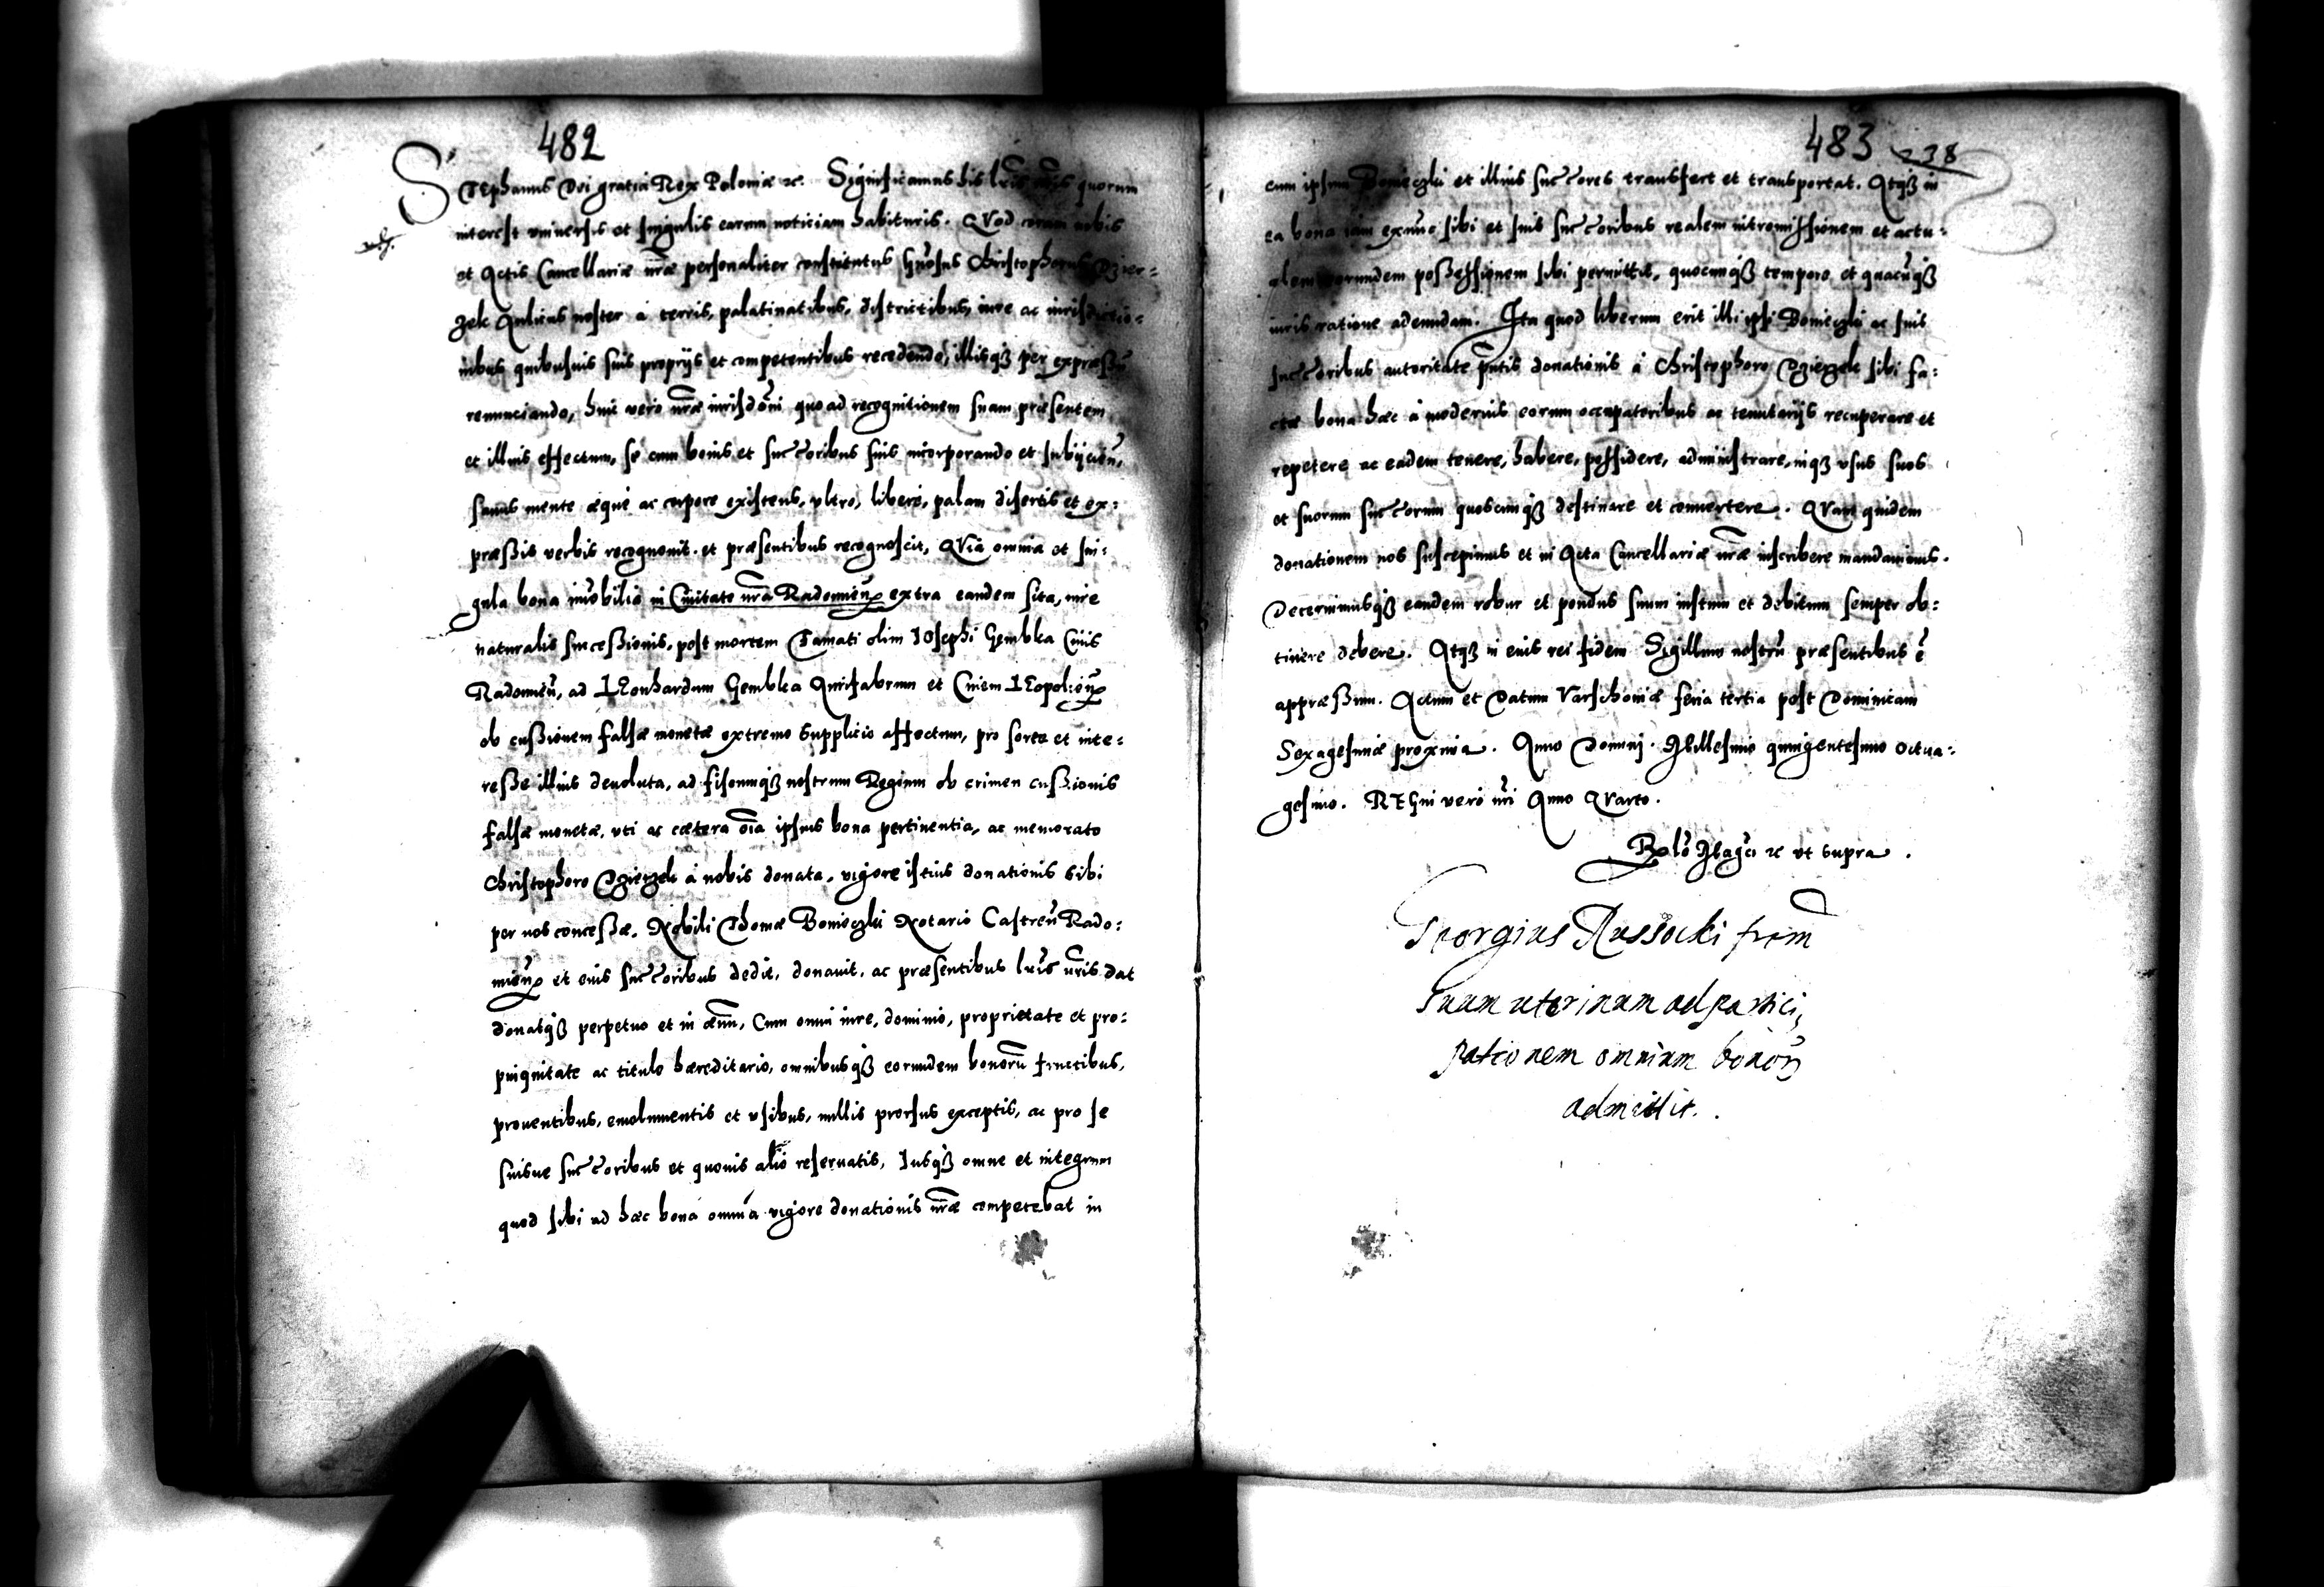 482
STEphanus Dei gratia Rex Poloniæ &c. Significamus his lr̃is nr̃is quorum
interest vniuersis et singulis earum noticiam habituris. QVod coram nobis
et Actis Cancellariæ nr̃æ personaliter constitutus Gñosus Christophorus Dzier=
zek Aulicus noster a terris, palatinatibus, districtibus, iure ac iurisdictio=
nibus quibusuis suis proprijs et competentibus recedendo, illisq3 per expraeßũ
renunciando, huic vero nr̃æ iurisdõni quo ad recognitionem suam præsentem
et illius effectum, se cum bonis et succ̃oribus suis incorporando et subijcieñ,
sanus mente æque ac corpore existens, vltro, libere, palam disertis et ex=
præßis verbis recognouit. et præsentibus recognoscit, QVia omnia et sin=
gula bona im̃obilia in Ciuitate nr̃a Radomieñ extra eandem sita, iure
naturalis succeßionis, post mortem Famati olim IOsephi Gembka Ciuis
Radomieñ, ad LEonhardum Gembka Aurifabrum et Ciuem LEopolieñ
ob cußionem falsæ monetæ extremo Supplicio affectum, pro sorte et inte=
reße illius deuoluta, ad fiscumq3 nostrum Regium ob crimen cußionis
falsæ monetæ, vti ac cætera oĩa ipsius bona pertinentia, ac memorato
Christophoro Dzierzek à nobis donata, vigore istius donationis Sibi
per nos conceßæ. Nobili Thomæ Bonieczki Notario Castreñ Rado=
mieñ et eius succ̃oribus dedit, donauit, ac præsentibus lr̃is nr̃is dat
donatq3 perpetuo et in æuũ, Cum omni iure, dominio, proprietate et pro=
pinquitate ac titulo hæreditario, omnibusq3 eorundem bonorũ fructibus,
prouentibus, emolumentis et vsibus, nullis prorsus exceptis, ac pro se
suisue succ̃oribus et quouis alio reseruatis, Iusq3 omne et integrum
quod sibi ad hæc bona omnia vigore donationis nr̃æ competebat in
483 238
eum ipsum Bonieczki et illius succ̃ores transfert et transportat. Atq3 in
ea bona iam exnunc sibi et suis succ̃oribus realem intromissionem et actu=
alem eorundem poßeßionem sibi permittit, quocunq3 tempore et quacũq3
iuris ratione adeundam. Ita quod liberum erit illi ipsi Boniezki ac suis
succ̃oribus autoritate pñtis donationis à Christophoro Dzierzek sibi fa=
ctæ bona hæc à modernis eorum occupatoribus ac tenutarijs recuperare et
repetere ac eadem tenere, habere, possidere, administrare, inq3 vsus suos
et suorum succ̃orum quoscunq3 destinare et conuertere. QVam quidem
donationem nos suscepimus et in Acta Cancellariæ nr̃æ inscribere mandauimus.
Decernimusq3 eandem robur et pondus suum iustum et debitum semper ob=
tinere debere. Atq3 in eius rei fidem Sigillum nostrũ præsentibus ẽ
appræßum. Actum et Datum Varschouiæ feria tertia post Dominicam
Sexagesimæ proxima. Anno Domini. Millesimo quingentesimo octua=
gesimo. REGni vero nr̃i Anno QVarto.
Relõ Magci &c vt Supra.
Georgius Russocki frem̃
Suum uterinum ad partici,
pationem omnium bonoꝝ
admittit.